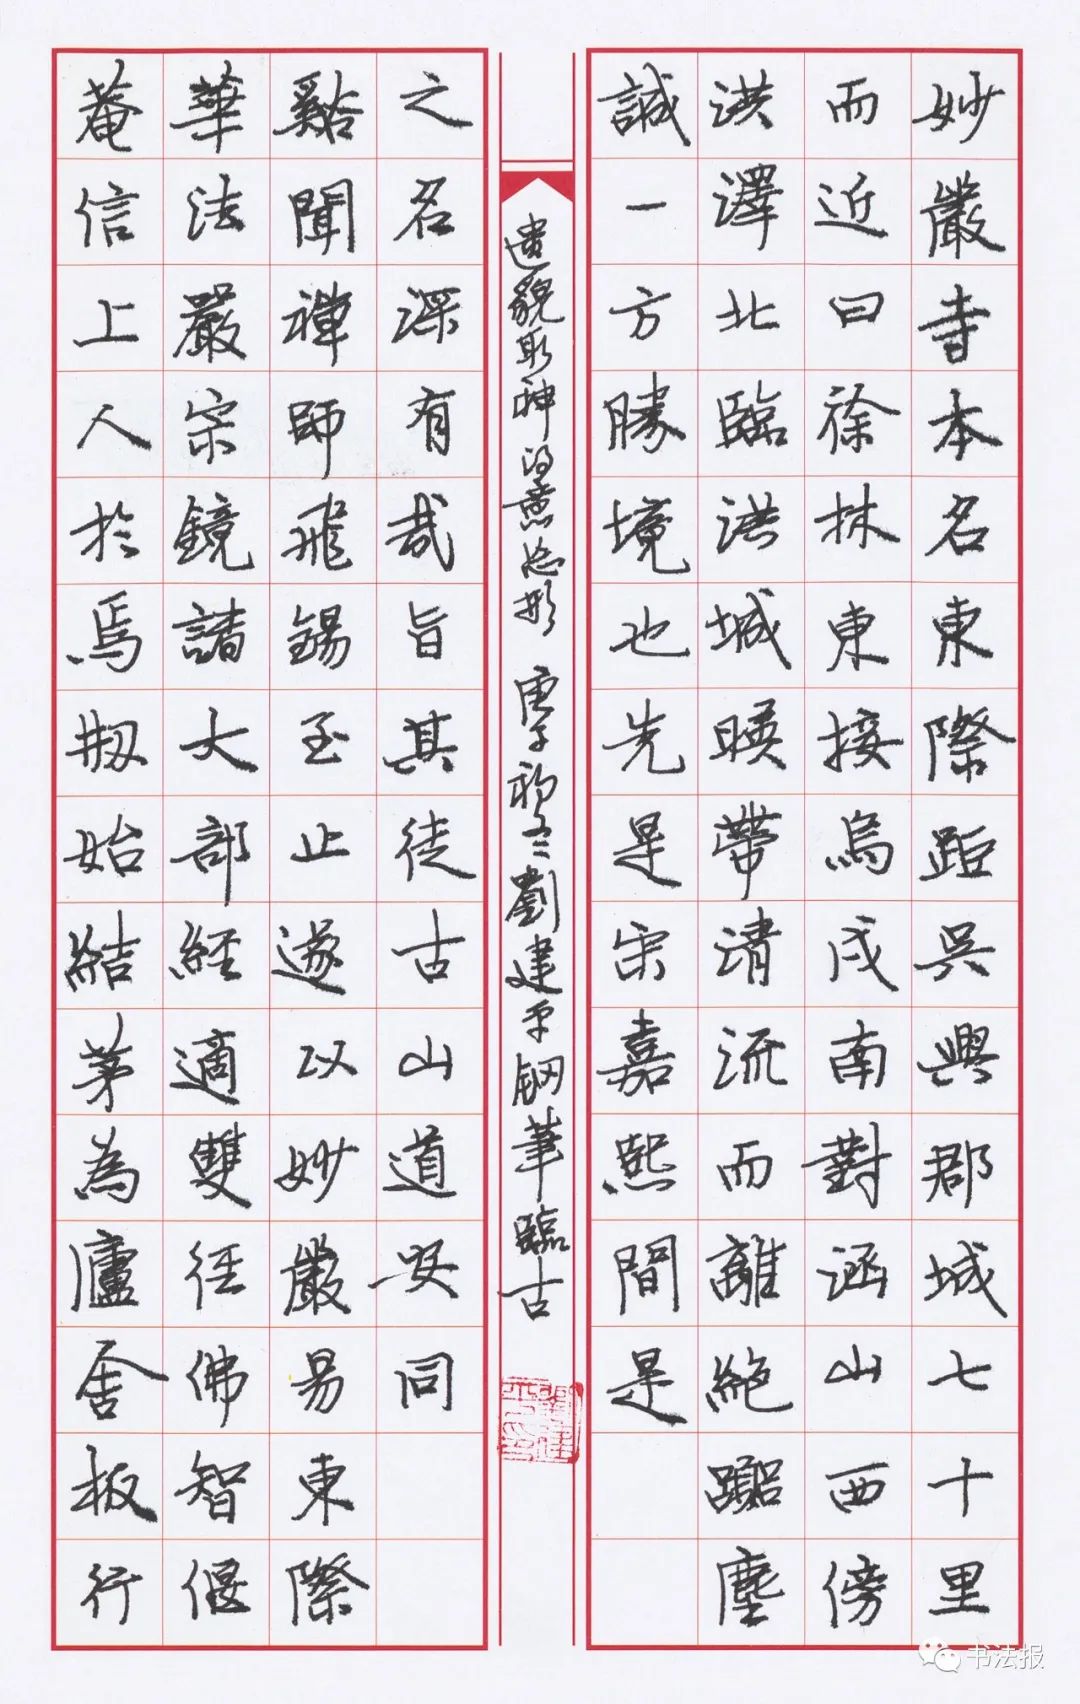 妙嚴寺本名東際距吳興郡城七十里
而近曰徐林東接烏戍南對涵山西傍
洪澤北臨洪城暎帶清流而離絶躝塵
誠一方勝境也先是宋嘉熙間是
遺貌取神得意忘形 庚子初冬劉建平鋼筆臨古
之名深有哉旨其徒古山道安同
谿聞禪師飛錫至止遂以妙嚴易東際
華法嚴宗鏡諸大部經適雙徑佛智偃
菴信上人於焉剏始結茅為廬舍板行
书法报